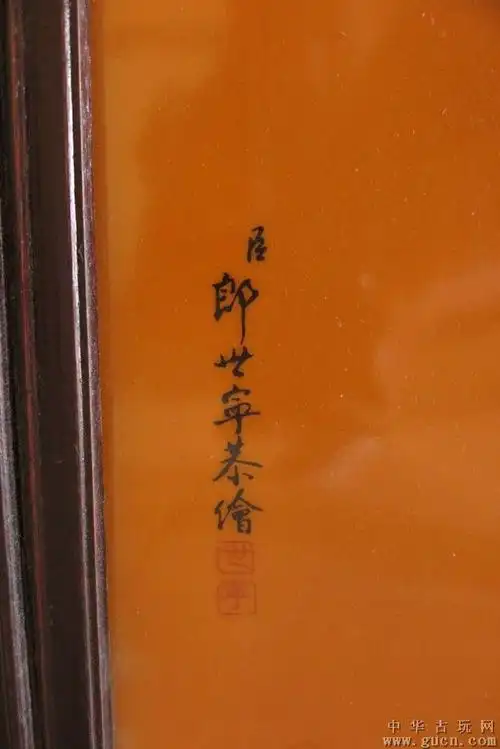 臣郎世寧恭繪
世
寧
中华古玩网
www.gucn.com